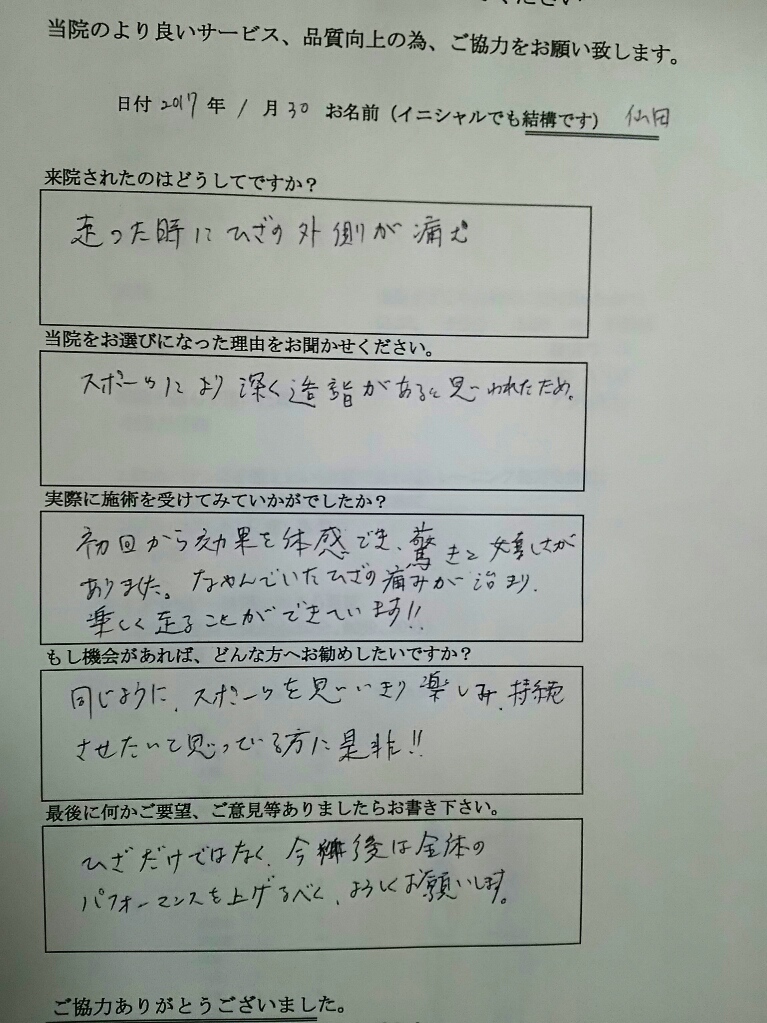 ください
当院のより良いサービス、品質向上の為、ご協力をお願い致します。
日付 2017 年 1 月 30 お名前（イニシャルでも結構です） 仙田
来院されたのはどうしてですか？
走った時に ひざの 外側が 痛む
当院をお選びになった理由をお聞かせください。
スポーツに より 深く造詣があると思われたため。
実際に施術を受けてみていかがでしたか？
初回から効果を体感でき、驚きと 嬉しさが
ありました。なやんでいたひざの痛みが治まり、
楽しく走ることができています!!
もし機会があれば、どんな方へお勧めしたいですか？
同じように、スポーツを思いきり楽しみ、持続
させたいと思っている方に是非!!
最後に何かご要望、ご意見等ありましたらお書き下さい。
ひざだけではなく、今後は全体の
パフォーマンスを上げるべく、よろしくお願いします。
ご協力ありがとうございました。